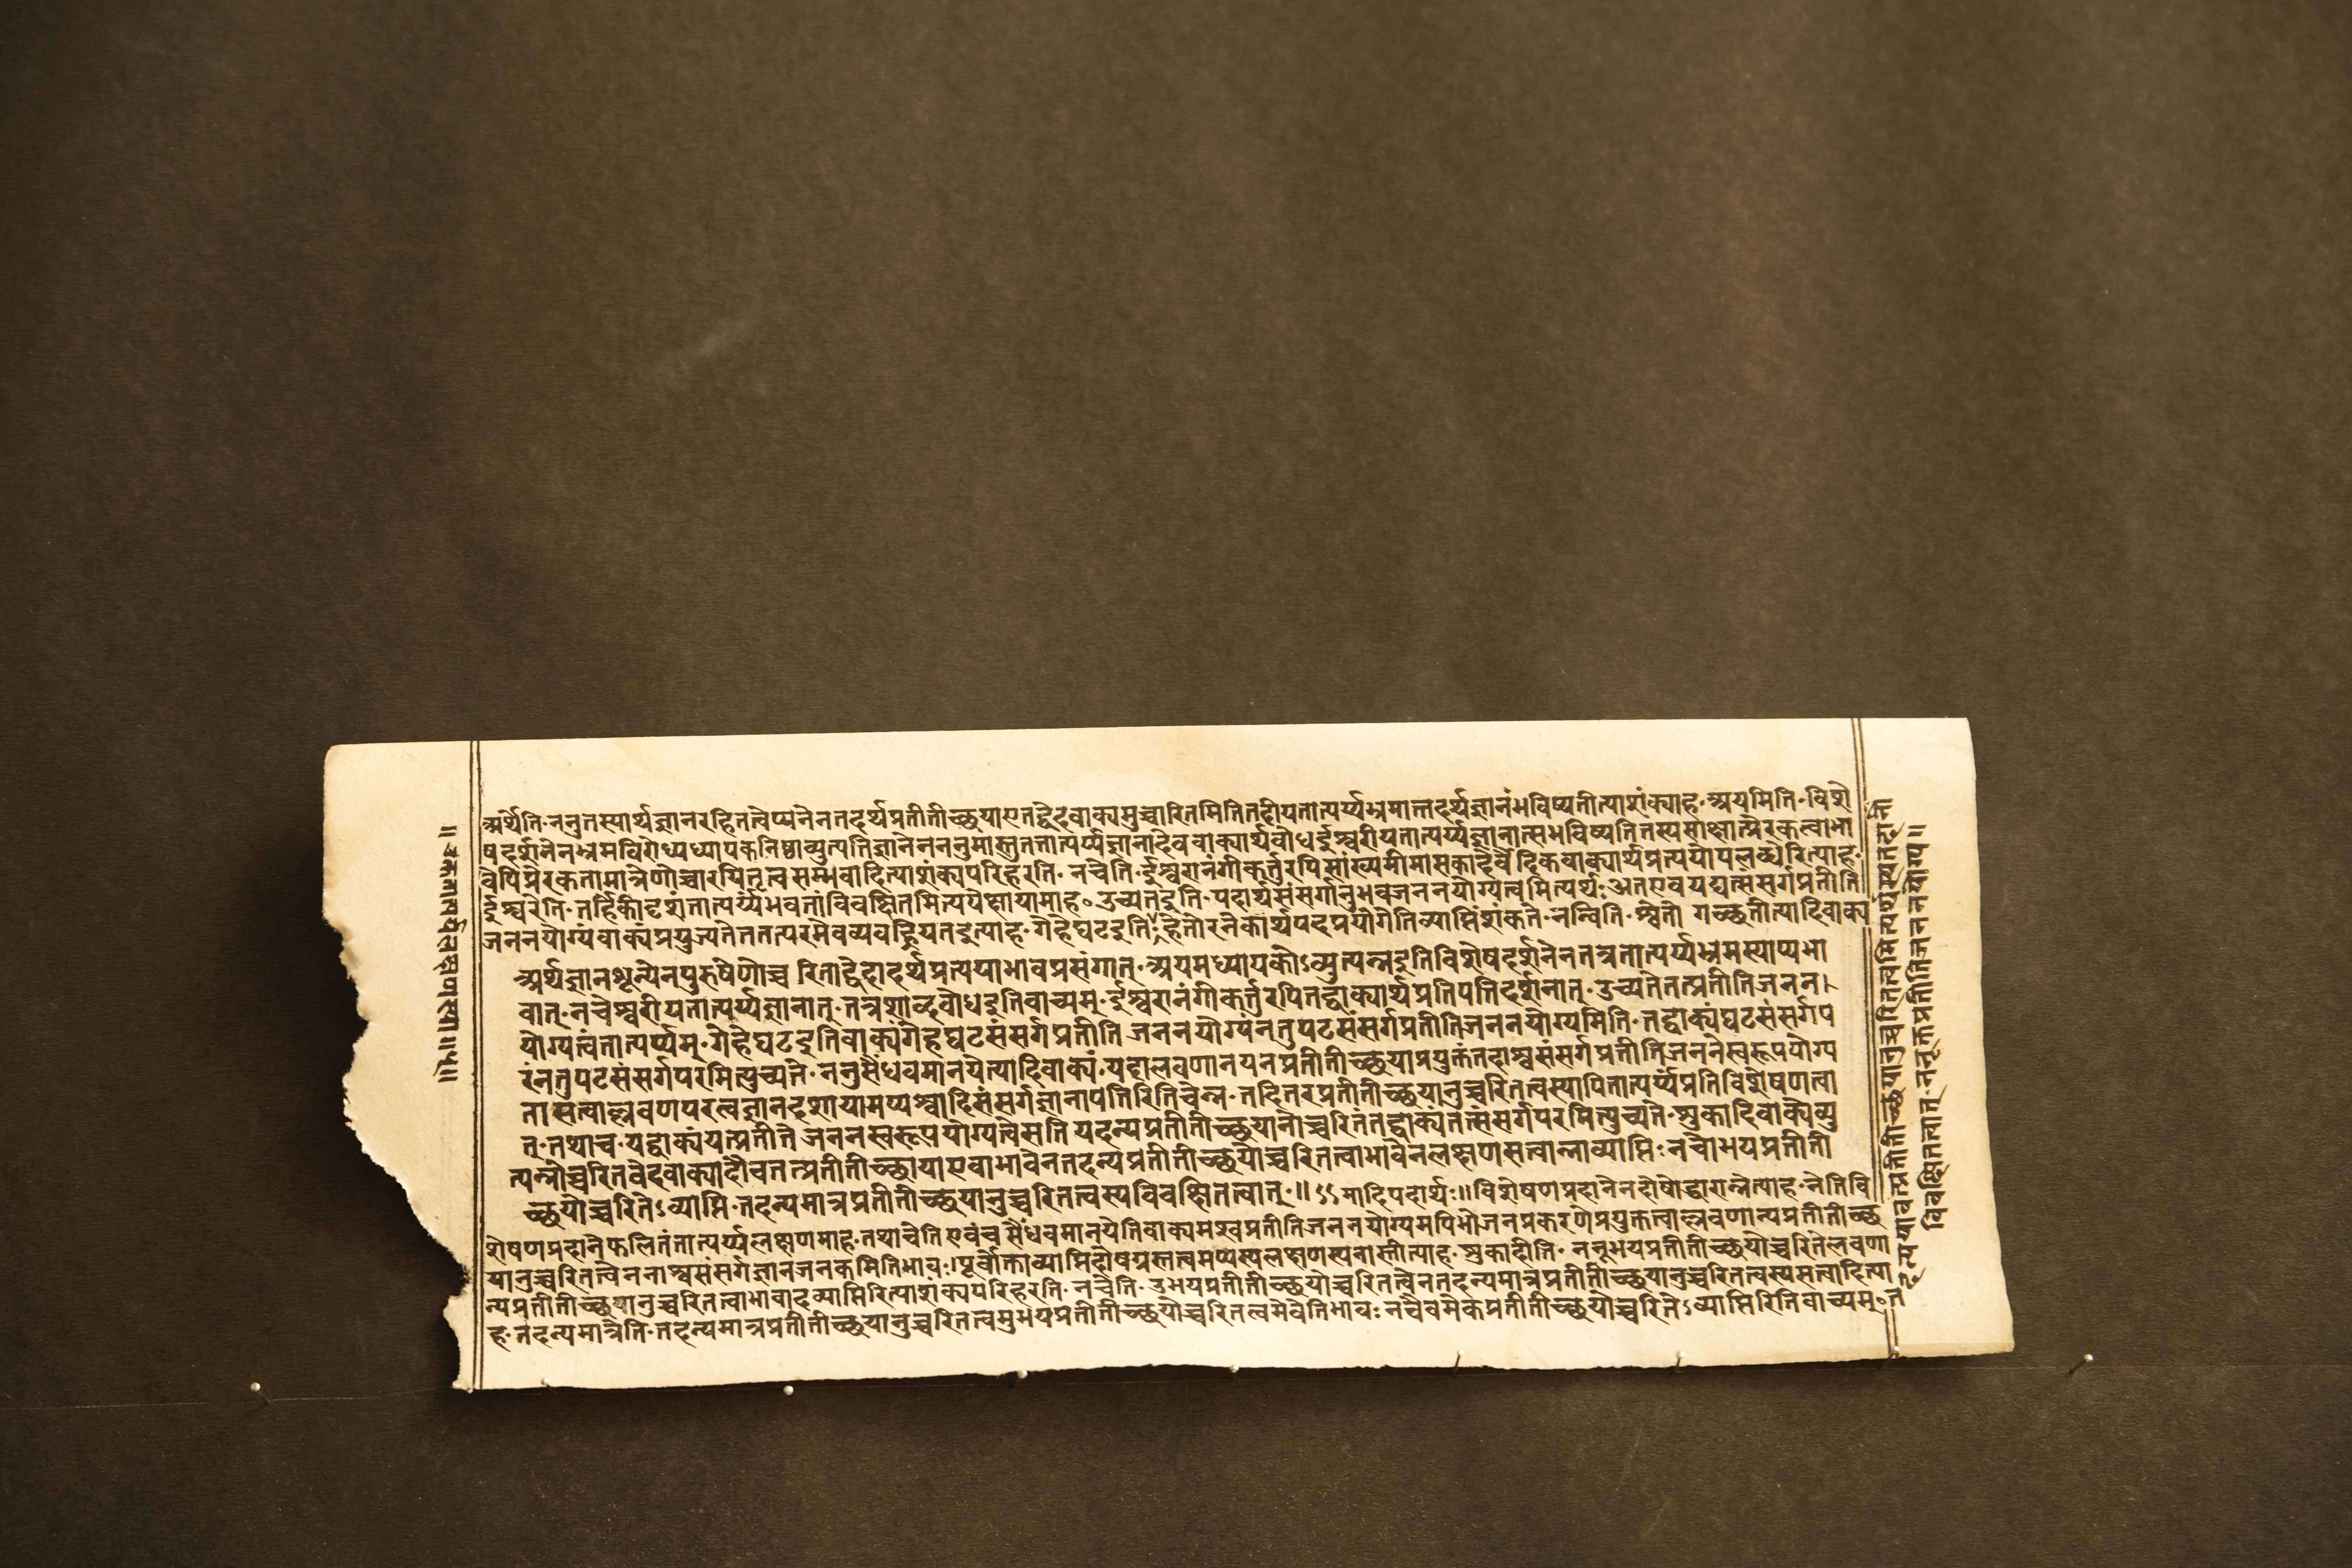 अर्थेति॰ननुतस्यार्थज्ञानरहितत्वेप्यनेनतदर्थप्रतीतीच्छयाएतद्वेदवाक्यमुच्चारितमितितदीयतात्पर्य्यभ्रमात्तदर्थज्ञानंभविष्यतीत्याशंक्याह॰अयमिति॰विशे
षदर्शनेनभ्रमविरोध्यध्यापकनिष्ठाव्युत्पतिज्ञानेनननुमास्तुतत्तात्पर्य्यज्ञानादेववाक्यार्थबोधईश्वरीयतात्पर्य्यज्ञानात्सभविष्यतितस्यसाक्षात्प्रेरकत्वाभा
वेपिप्रेरकतामात्रेणोच्चारयितृत्वसम्भवादित्याशंक्यपरिहरति॰नचेति॰ईश्वरानंगीकर्तुरपिसांख्यमीमांसकादेर्वैदिकवाक्यार्थप्रत्ययोपलब्धेरित्याह॰
ईश्वरेति॰तर्हिकीदृशंतात्पर्य्यंभवतांविवक्षितमित्यपेक्षायामाह॰उच्यतेइति॰पदार्थसंसर्गानुभवजननयोग्यत्वमित्यर्थः॰अतएवयद्यत्संसर्गप्रतीति
जननयोग्यंवाक्यंप्रयुज्यतेतत्तत्परमेवव्यवह्रियतइत्याह॰गेहेघटइति॰हेतोरनेकार्थपदप्रयोगेतिव्याप्तिंशंकते॰नन्विति॰श्वेतो गच्छतीत्यादिवाक्य
अर्थज्ञानशून्येनपुरुषेणोच्च रिताद्वेदादर्थप्रत्ययाभावप्रसंगात्॰अयमध्यापकोऽव्युत्पन्नइतिविशेषदर्शनेनतत्रतात्पर्य्यभ्रमस्याप्यभा
वात्॰नचेश्वरीयतात्पर्य्यज्ञानात्॰तत्रशाब्दबोधइतिवाच्यम्॰ईश्वरानंगीकर्त्तुरपितद्वाक्यार्थप्रतिपतिदर्शनात्॰उच्यतेतत्प्रतीतिजनन।
योग्यत्वंतात्पर्य्यम्॰गेहेघटइतिवाक्यंगेहघटसंसर्गप्रतीति जननयोग्यंनतुपटसंसर्गप्रतीतिजननयोग्यमिति॰तद्वाक्यंघटसंसर्गप
रंनतुपटसंसर्गपरमित्युच्यते॰ननुसैंधवमानयेत्यादिवाक्यं॰यदालवणानयनप्रतीतीच्छयाप्रयुक्तंतदाश्वसंसर्गप्रतीतिजननेस्वरूपयोग्य
तासत्वाल्लवणपरत्वज्ञानदशायामप्यश्वादिसंसर्गज्ञानापत्तिरितिचेन्न॰तदितरप्रतीतीच्छयानुच्चरितत्वस्यापितात्पर्य्यंप्रतिविशेषणत्वा
त्॰तथाच॰यद्वाक्यंयत्प्रतीति जननस्वरूपयोग्यत्वेसति यदन्यप्रतीतीच्छयानोच्चरितंतद्वाक्यंतत्संसर्गपरमित्युच्यते॰शुकादिवाक्येव्यु
त्पन्नोच्चरितवेदवाक्यादौचतत्प्रतीतीच्छायाएवाभावेनतदन्यप्रतीतीच्छयोच्चरितत्वाभावेनलक्षणसत्वान्नाव्याप्तिः॰नचोभयप्रतीती
च्छयोच्चरितेऽव्याप्तिः॰तदन्यमात्रप्रतीतीच्छयानुच्चरितत्वस्यविवक्षितत्वात्॰॥ ऽऽमादिपदार्थः॥विशेषणप्रदानेनदोषोद्धारान्नेत्याह॰नेतिवि
शेषणप्रदानेफलितंतात्पर्य्यलक्षणमाह॰तथाचेति॰एवंच सैंधवमानयेतिवाक्यमश्वप्रतीतिजननयोग्यमपिभोजनप्रकरणेप्रयुक्तत्वाल्लवणान्यप्रतीतीच्छ
यानुच्चरितत्वेननाश्वसंसर्गज्ञानजनकमितिभावः॰पूर्वोक्ताव्याप्तिदोषग्रस्तत्वमप्यस्यलक्षणस्यनास्तीत्याह॰शुकादीति॰ननूभयप्रतीतीच्छयोच्चरितेलवणा
न्यप्रतीतीच्छयानुच्चरितत्वाभावादव्याप्तिरित्याशंक्यपरिहरति॰नचेति॰उभयप्रतीतीच्छयोच्चरितत्वेनतदन्यमात्रप्रतीतीच्छयानुच्चरितत्वस्यसत्वादित्या
ह॰तदन्यमात्रेति॰तदन्यमात्रप्रतीतीच्छयानुच्चरितत्वमुभयप्रतीतीच्छयोच्चरितत्वमेवेतिभावः॰नचैवमेकप्रतीतीच्छयोच्चरितेऽव्याप्तिरितिवाच्यम्॰त
विवक्षितत्वात्॰ननूक्तप्रतीतिजननयोग्य॥
॥उक्ततात्पर्य्यलक्षणस्या॥५॥